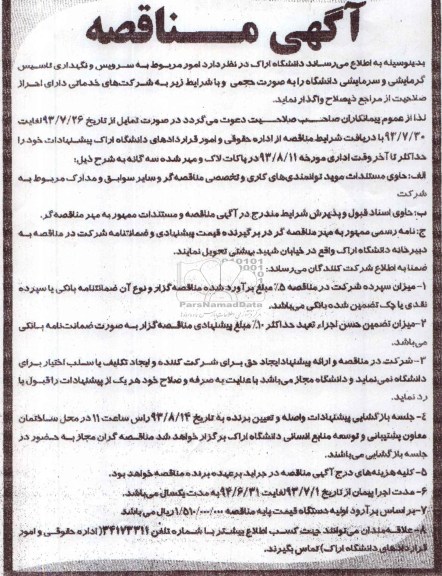 آگهی مـــناقصه
بدینوسیله به اطلاع می‌رساند دانشگاه اراک در نظر دارد امور مربوط به سرویس و نگهداری تاسیس
گرمایشی و سرمایشی دانشگاه را به صورت حجمی و با شرایط زیر به شرکت‌های خدماتی دارای احراز
صلاحیت از مراجع ذیصلاح واگذار نماید.
لذا از عموم پیمانکاران صاحب صلاحیت دعوت می‌گردد در صورت تمایل از تاریخ ۹۳/۷/۲۶ لغایت
۹۳/۷/۳۰ با دریافت شرایط مناقصه از اداره حقوقی و امور قراردادهای دانشگاه اراک پیشنهادات خود را
حداکثر تا آخر وقت اداری مورخه ۹۳/۸/۱۱ در پاکات لاک و مهر شده سه گانه به شرح ذیل:
الف: حاوی مستندات موید توانمندی‌های کاری و تخصصی مناقصه‌گر و سایر سوابق و مدارک مربوط به
شرکت
ب: حاوی اسناد قبول و پذیرش شرایط مندرج در آگهی مناقصه و مستندات ممهور به مهر مناقصه‌گر.
ج: نامه رسمی ممهور به مهر مناقصه گر در برگیرنده قیمت پیشنهادی و ضمانتنامه شرکت در مناقصه به
دبیرخانه دانشگاه اراک واقع در خیابان شهید بهشتی تحویل نمایند.
ضمنا به اطلاع شرکت کنندگان می‌رساند:
۱-میزان سپرده شرکت در مناقصه ۵٪ مبلغ برآورد شده مناقصه گزار و نوع آن ضمانتنامه بانکی یا سپرده
نقدی یا چک تضمین شده بانکی می‌باشد.
ParsNamadData
۲-میزان تضمین حسن اجراء تعهد حداکثر ۱۰٪ مبلغ پیشنهادی مناقصه‌گزار به صورت ضمانت‌نامه بانکی
می‌باشد.
۳-شرکت در مناقصه و ارائه پیشنهاد ایجاد حق برای شرکت کننده و ایجاد تکلیف یا سلب اختیار برای
دانشگاه نمی‌نماید و دانشگاه مجاز می‌باشد با عنایت به صرفه و صلاح خود هر یک از پیشنهادات را قبول یا
رد نماید.
۴- جلسه بازگشایی پیشنهادات واصله و تعیین برنده به تاریخ ۹۳/۸/۱۴ راس ساعت ۱۱ در محل ساختمان
معاون پشتیبانی و توسعه منابع انسانی دانشگاه اراک برگزار خواهد شد مناقصه گران مجاز به حضور در
جلسه بازگشایی می‌باشند.
۵- کلیه هزینه‌های درج آگهی مناقصه در جراید بر عهده برنده مناقصه خواهد بود.
۶- مدت اجرا پیمان از تاریخ ۹۳/۷/۱ لغایت ۹۴/۶/۳۱ به مدت یکسال می‌باشد.
۷- بر اساس برآورد اولیه دستگاه قیمت پایه مناقصه ۱/۵۱۰/۰۰۰/۰۰۰ ریال می‌باشد
۸- علاقه‌مندان می‌توانند جهت کسب اطلاع بیشتر با شماره تلفن ۳۴۱۷۳۳۱۱ (اداره حقوقی و امور
قراردادهای دانشگاه اراک) تماس بگیرند.